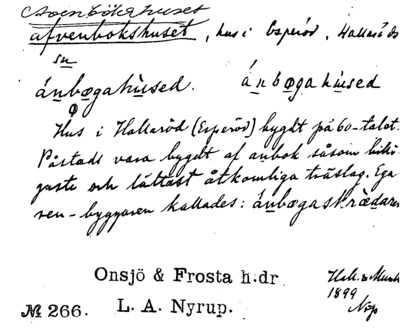 Avenbökshuset
afvenbokshuset, hus i Esperöd, Hallarö Os
su
ánbøgahùsed. ánbøgahùsed
Hus i Hallaröd (Esperöd) bygdt på 60-talet.
Påstods vara bygdt af anbok såsom
och lättast åtkomliga träslag. Ega
ren-byggaren kallades: ánbøgaskrædaren
Onsjö & Frosta h:dr
Hall. & Munk
1899
№ 266. L. A. Nyrup.
Nrp